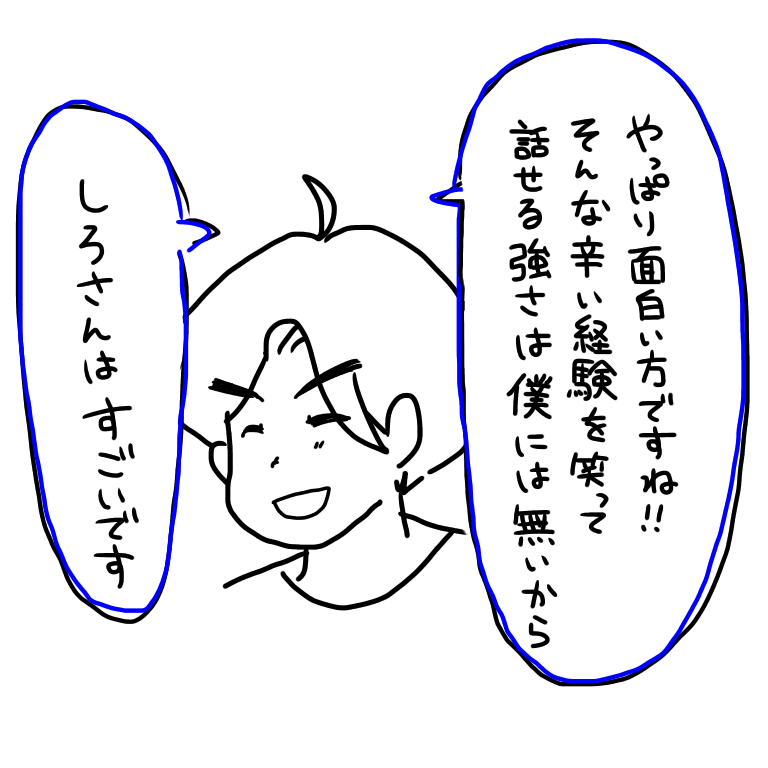 やっぱり面白い方ですね!!
そんな辛い経験を笑って
話せる強さは僕には無いから
しろさんはすごいです